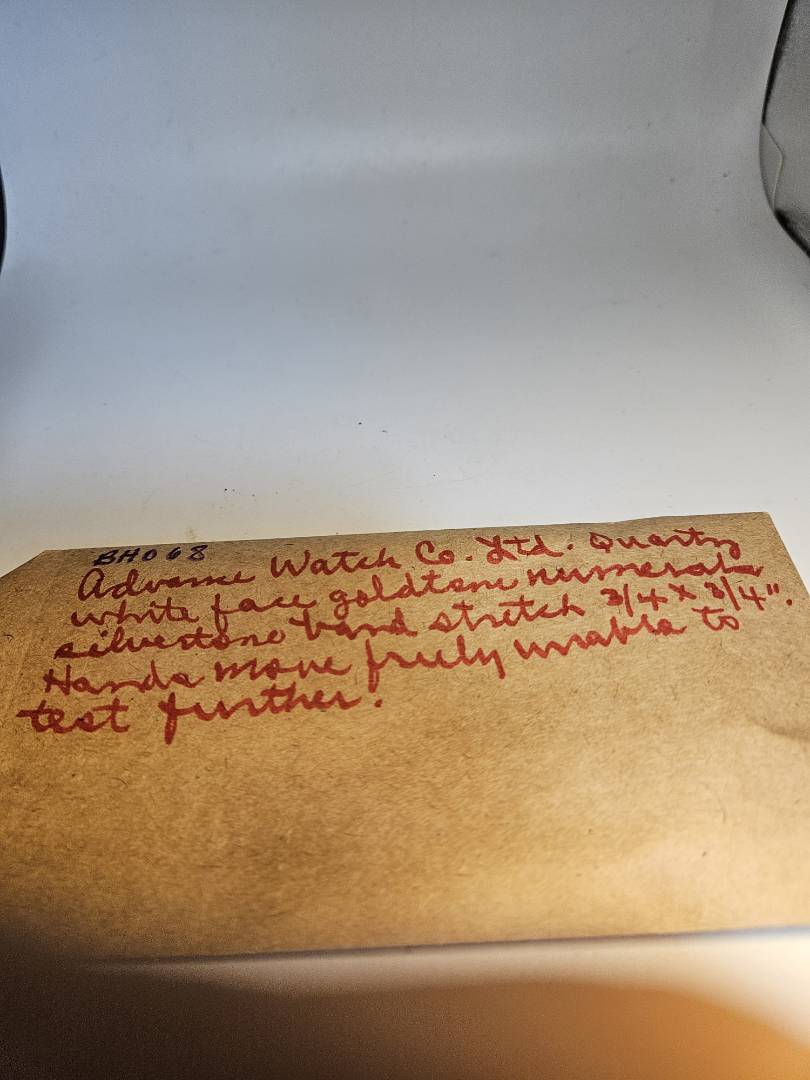 BH068
Advance Watch Co. Ltd. Quartz
white face goldtone numerals
silvertone band stretch 3/4 x 3/4".
Hands move freely unable to
test further.